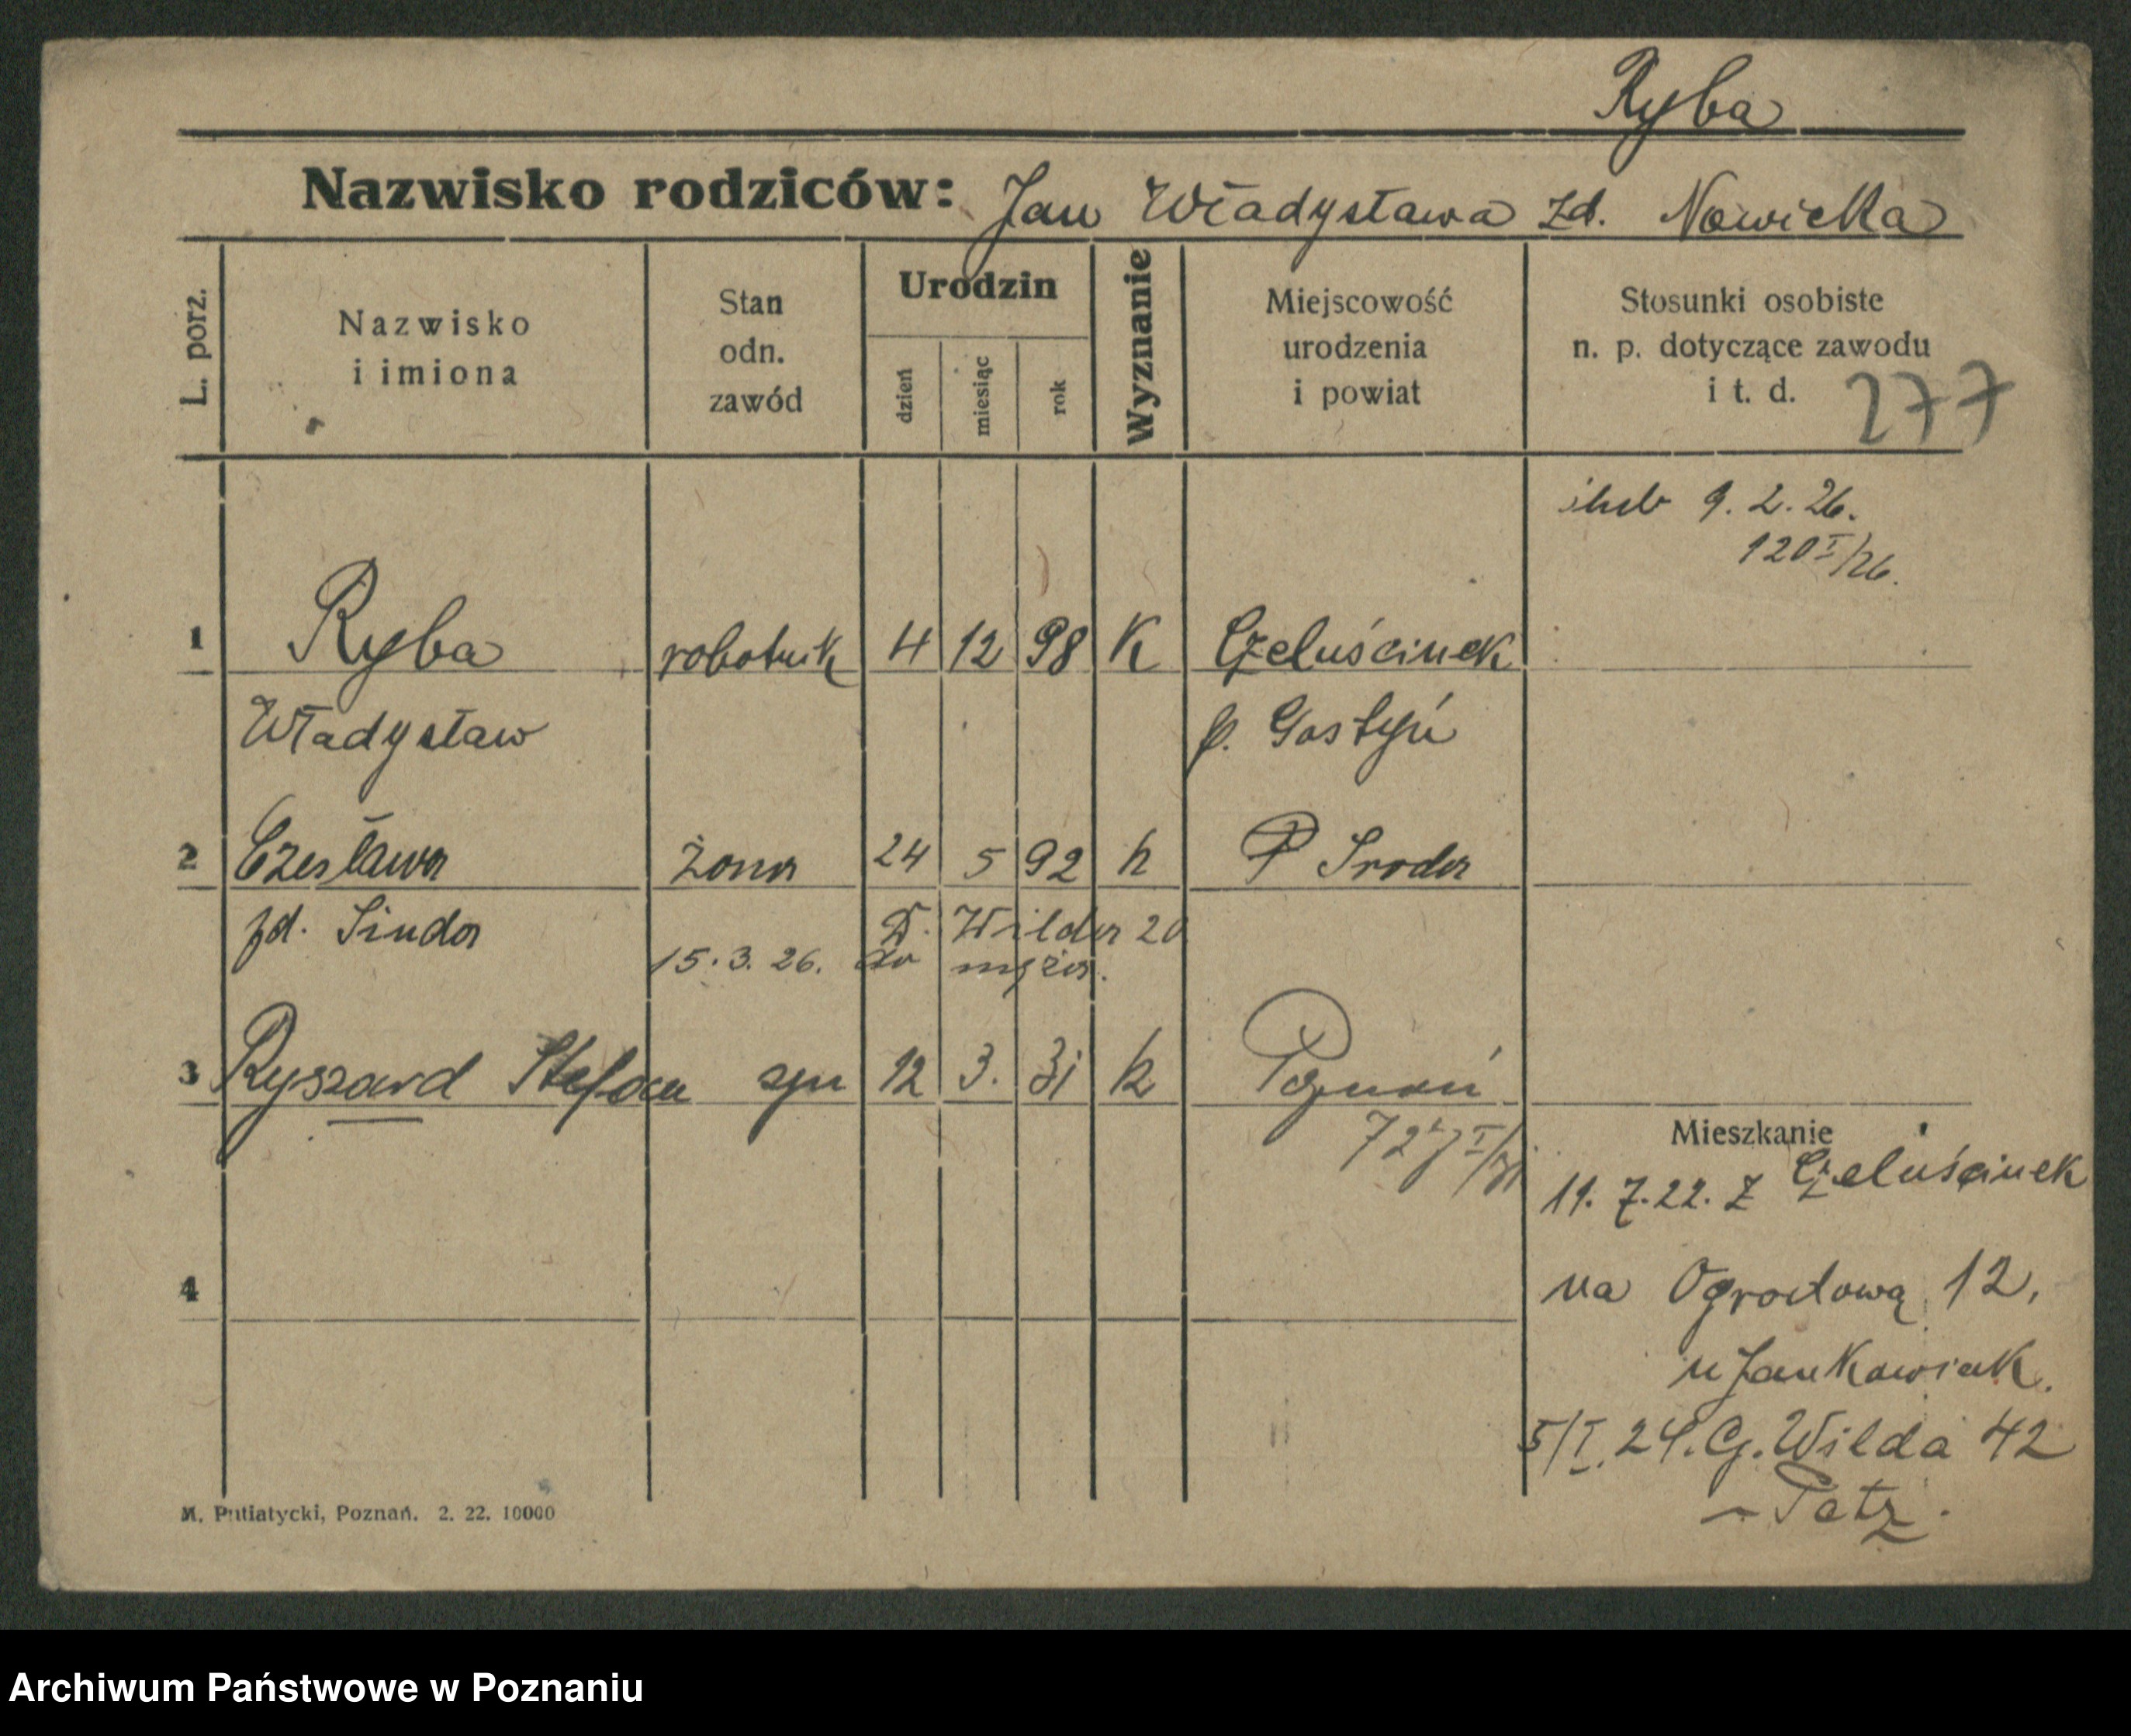 Ryba
Nazwisko rodziców: Jan Władysława zd. Nowicka
L. porz.
Nazwisko
i imiona
Stan
odn.
zawód
Urodzin
dzień
miesiąc
rok
Wyznanie
Miejscowość
urodzenia
i powiat
Stosunki osobiste
n. p. dotyczące zawodu
i t. d.
277
ślub 9. 2. 26.
120 I/26.
1 Ryba robotnik 4 12 98 K Czeluścinek
Władysław p. Gostyń
2 Czesława żona 24 5 92 k P Sroda
zd. Sinda D. Wilda 20
15. 3. 26. do męża.
3 Ryszard Stefan syn 12 3. 31 k Poznań
Mieszkanie
11. 7. 22. z Czeluścinek
4
na Ogrodową 12,
u Jankowiak.
5/I. 24. G. Wilda 42
- Patz.
M. Putiatycki, Poznań. 2. 22. 10000
Archiwum Państwowe w Poznaniu